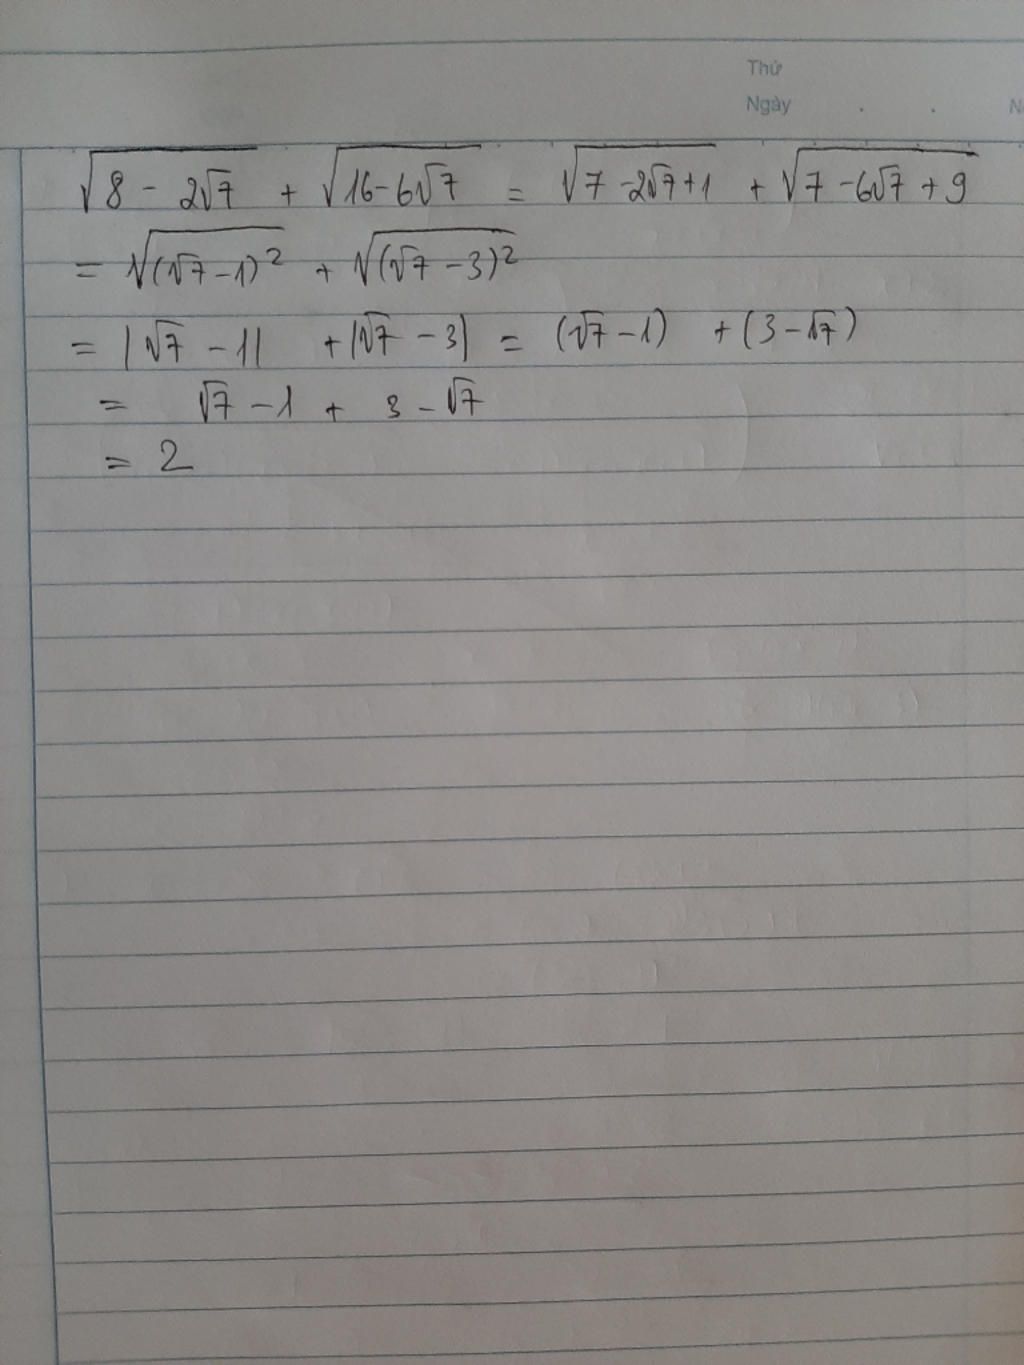 Thứ
Ngày . .
√(8 - 2√7) + √(16-6√7) = √(7-2√7+1) + √(7-6√7+9)
= √((√7-1)²) + √((√7-3)²)
= |√7-1| + |√7-3| = (√7-1) + (3-√7)
= √7-1 + 3-√7
= 2